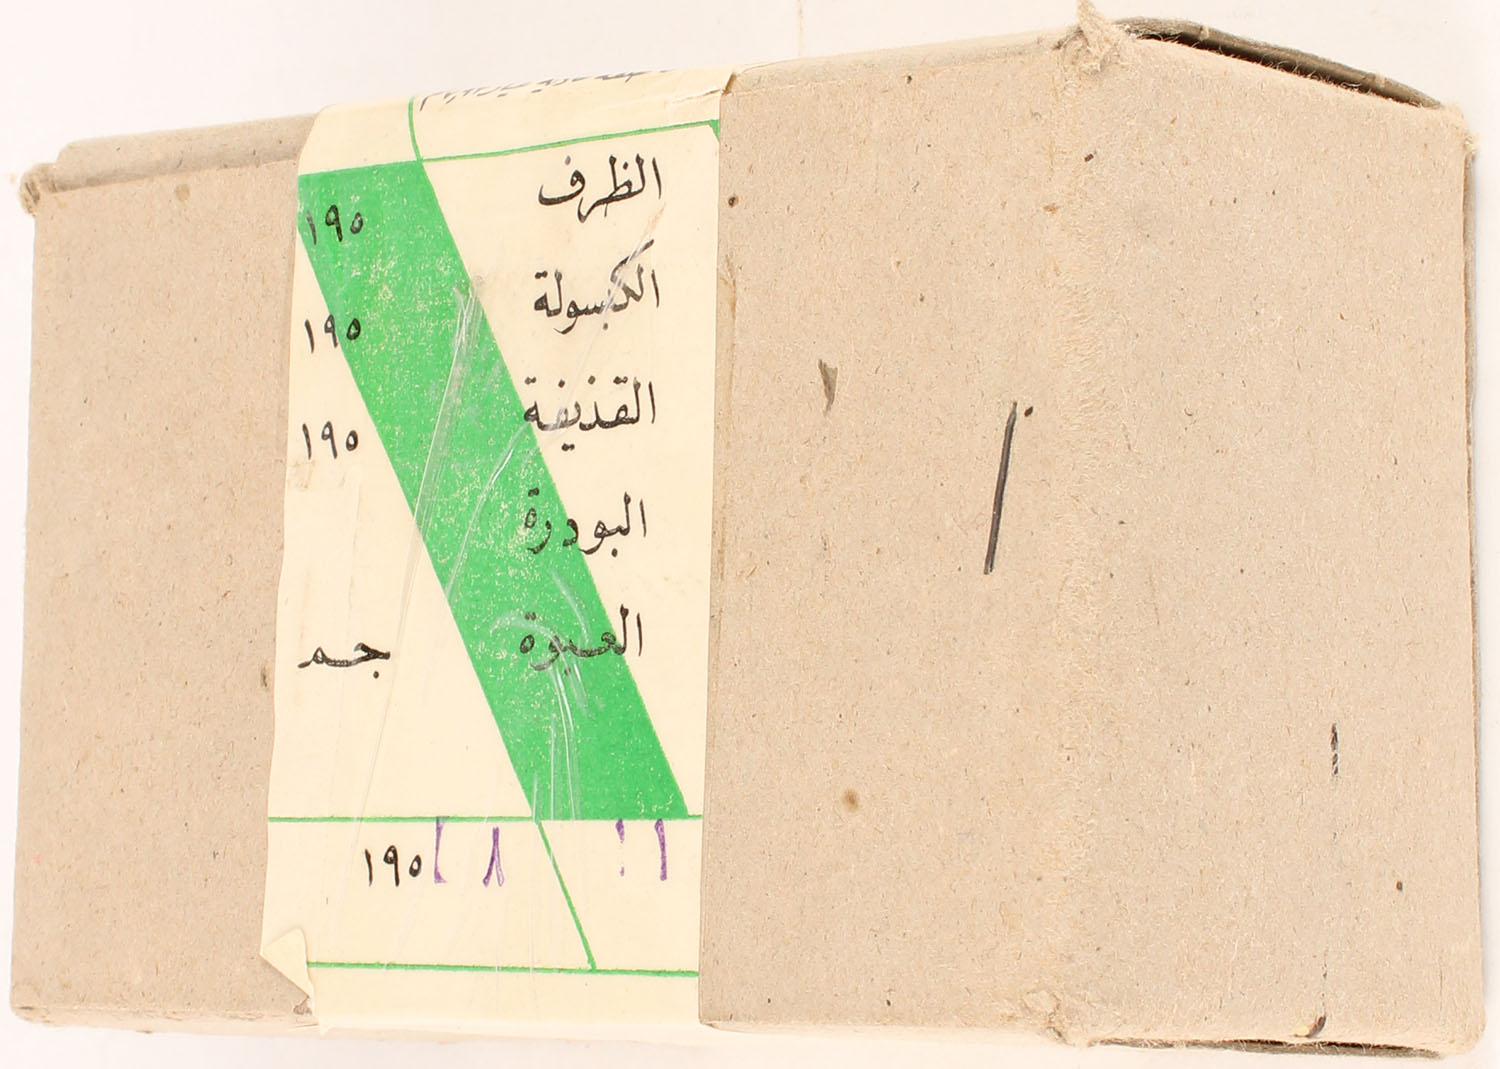 الظرف ١٩٥
الكبسولة ١٩٥
القذيفة ١٩٥
البودرة
العبوة جم
٨ ١٩٥